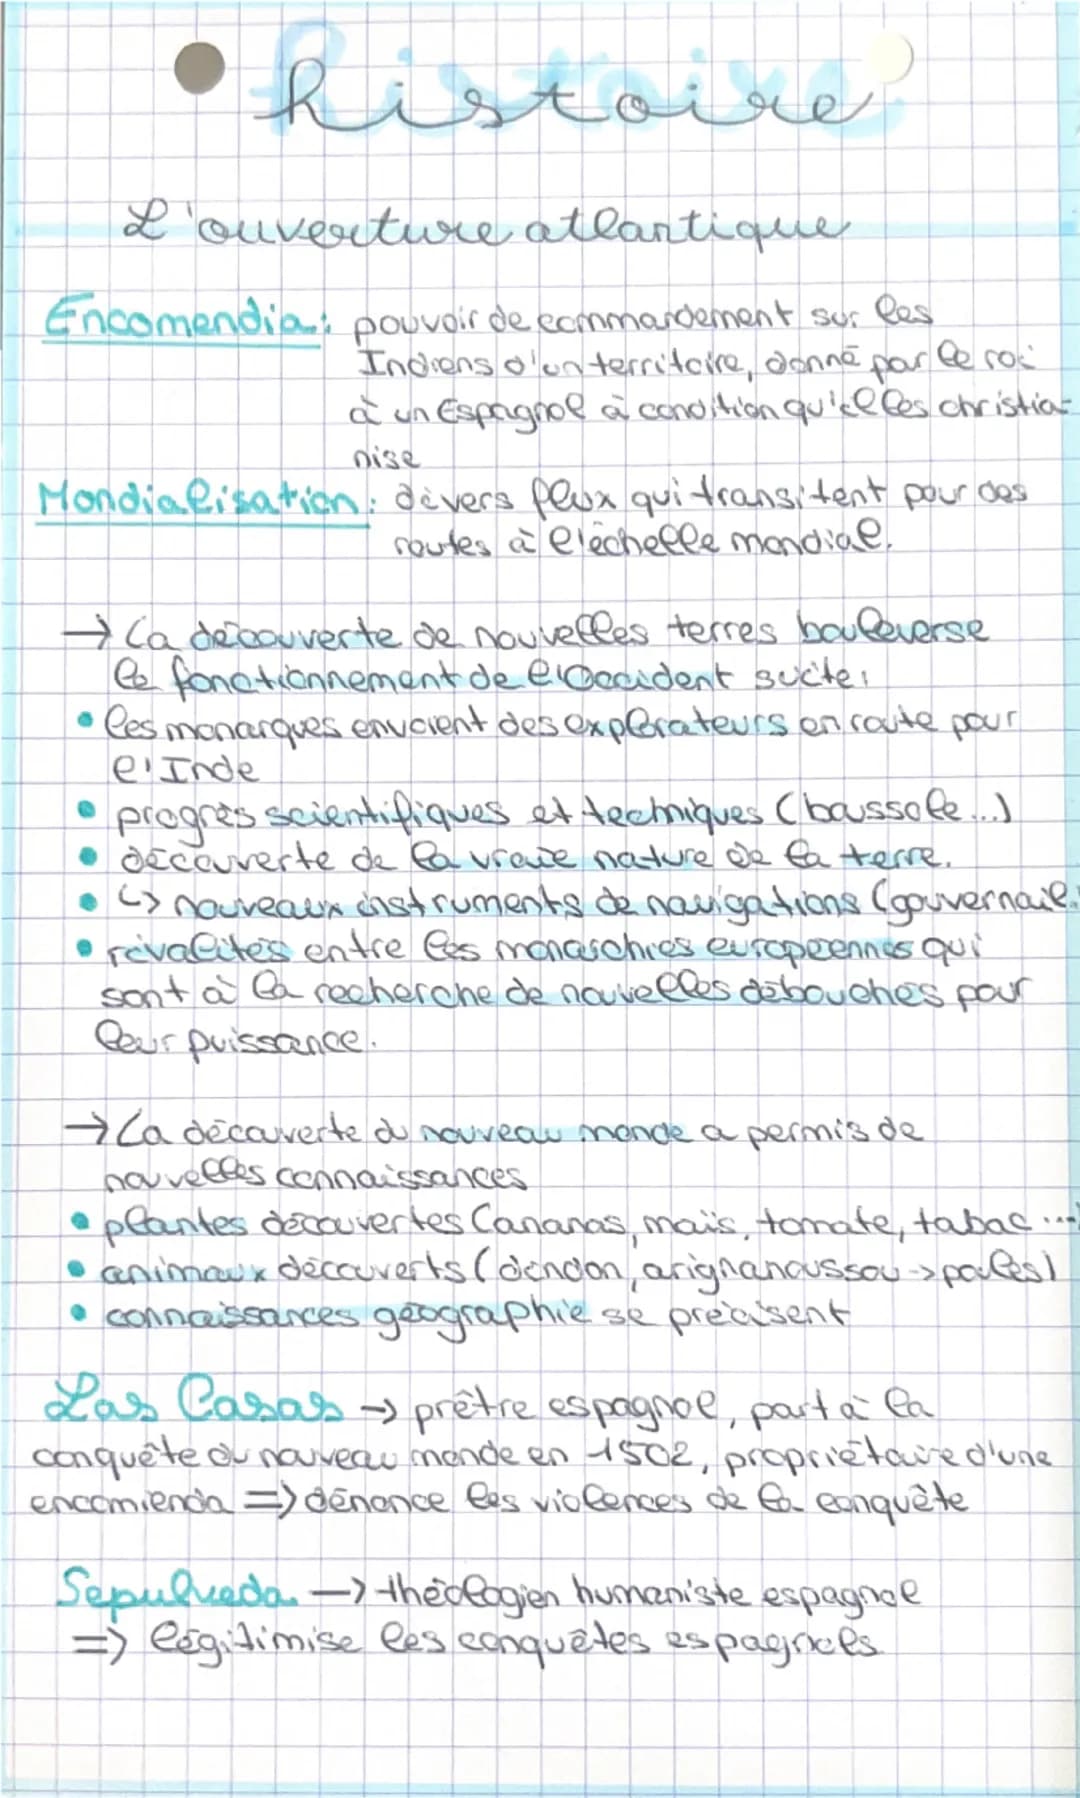 histoire
L'ouverture atlantique
Encomendia : pouvoir de commandement sur les
Indiens d'un territoire, donné par le roi
à un Espagnol à condition qu'il les christia-
nise
Mondialisation : divers flux qui transitent pour des
routes à l'échelle mondiale.
→ La découverte de nouvelles terres bouleverse
le fonctionnement de l'Occident suite :
• les monarques envoient des explorateurs en route pour
l'Inde
• progrès scientifiques et techniques (boussole...)
• découverte de la vraie nature de la terre.
• ↳ nouveaux instruments de navigations (gouvernail.
• rivalités entre les monarchies européennes qui
sont à la recherche de nouvelles débouchés pour
leur puissance.
→ La découverte du nouveau monde a permis de
nouvelles connaissances
• plantes découvertes (ananas, maïs, tomate, tabac ...
• animaux découverts (dindon, orignanoussou -> poules)
• connaissances géographie se précisent
Las Casas → prêtre espagnol, part à la
conquête du nouveau monde en 1502, propriétaire d'une
encomienda => dénonce les violences de la conquête
Sepulveda → théologien humaniste espagnol
=> légitimise les conquêtes espagnols